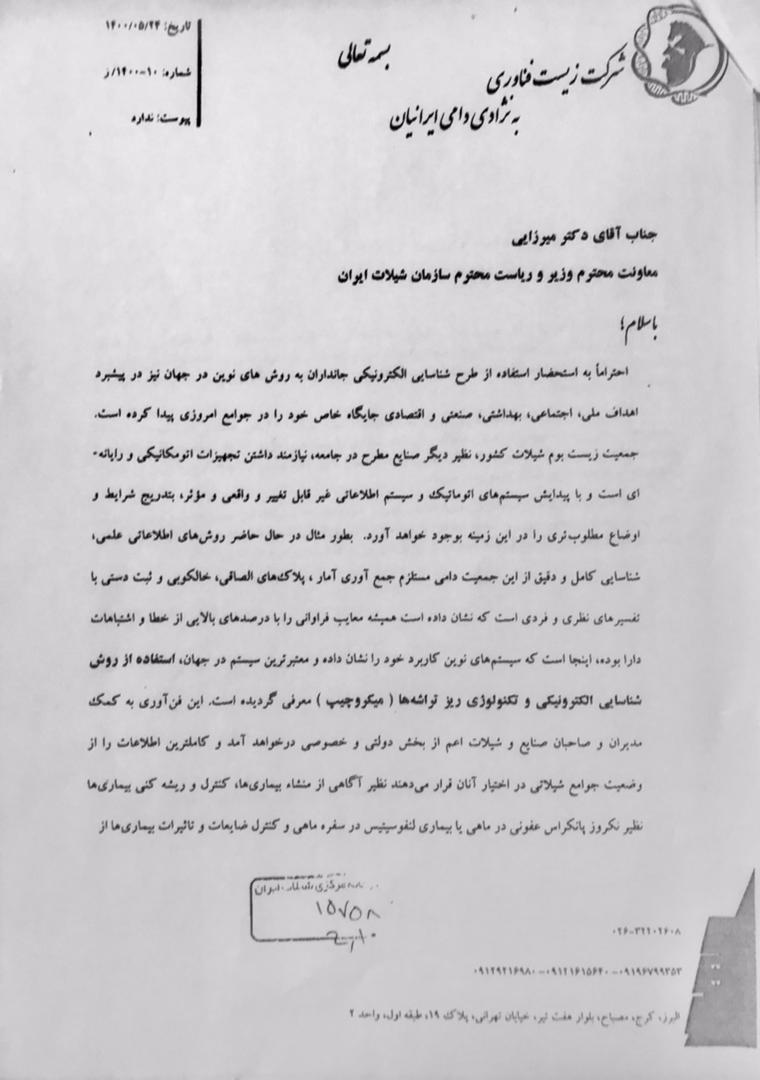 بسمه تعالی
شرکت زیست فناوری
به نژادی دامی ایرانیان
تاریخ: ۱۴۰۰/۰۵/۲۴
شماره: ۱۰-۱۴۰۰/ز
پیوست: ندارد
جناب آقای دکتر میرزایی
معاونت محترم وزیر و ریاست محترم سازمان شیلات ایران
باسلام؛
احتراماً به استحضار استفاده از طرح شناسایی الکترونیکی جانداران به روش های نوین در جهان نیز در پیشبرد
اهداف ملی، اجتماعی، بهداشتی، صنعتی و اقتصادی جایگاه خاص خود را در جوامع امروزی پیدا کرده است.
جمعیت زیست بوم شیلات کشور، نظیر دیگر صنایع مطرح در جامعه، نیازمند داشتن تجهیزات اتومکانیکی و رایانه-
ای است و با پیدایش سیستم‌های اتوماتیک و سیستم اطلاعاتی غیر قابل تغییر و واقعی و مؤثر، بتدریج شرایط و
اوضاع مطلوب‌تری را در این زمینه بوجود خواهد آورد. بطور مثال در حال حاضر روش‌های اطلاعاتی علمی،
شناسایی کامل و دقیق از این جمعیت دامی مستلزم جمع آوری آمار ، پلاک‌های الصاقی، خالکوبی و ثبت دستی با
تفسیرهای نظری و فردی است که نشان داده است همیشه معایب فراوانی را با درصدهای بالایی از خطا و اشتباهات
دارا بوده، اینجا است که سیستم‌های نوین کاربرد خود را نشان داده و معتبرترین سیستم در جهان، استفاده از روش
شناسایی الکترونیکی و تکنولوژی ریز تراشه‌ها ( میکروچیپ ) معرفی گردیده است. این فن‌آوری به کمک
مدیران و صاحبان صنایع و شیلات اعم از بخش دولتی و خصوصی درخواهد آمد و کاملترین اطلاعات را از
وضعیت جوامع شیلاتی در اختیار آنان قرار می‌دهند نظیر آگاهی از منشاء بیماری‌ها، کنترل و ریشه کنی بیماری‌ها
نظیر نکروز پانکراس عفونی در ماهی یا بیماری لنفوسیتیس در سفره ماهی و کنترل ضایعات و تاثیرات بیماری‌ها از
مرکزی شیلات ایران
۱۵۷۵۸
۰۲۶-۳۲۲۰۲۶۰۸
۰۹۱۲۹۲۱۶۹۸۰-۰۹۱۲۱۶۱۵۶۴۰-۰۹۱۹۶۷۹۹۳۵۳
البرز، کرج، مصباح، بلوار هفت تیر، خیابان تهرانی، پلاک ۱۹، طبقه اول، واحد ۲